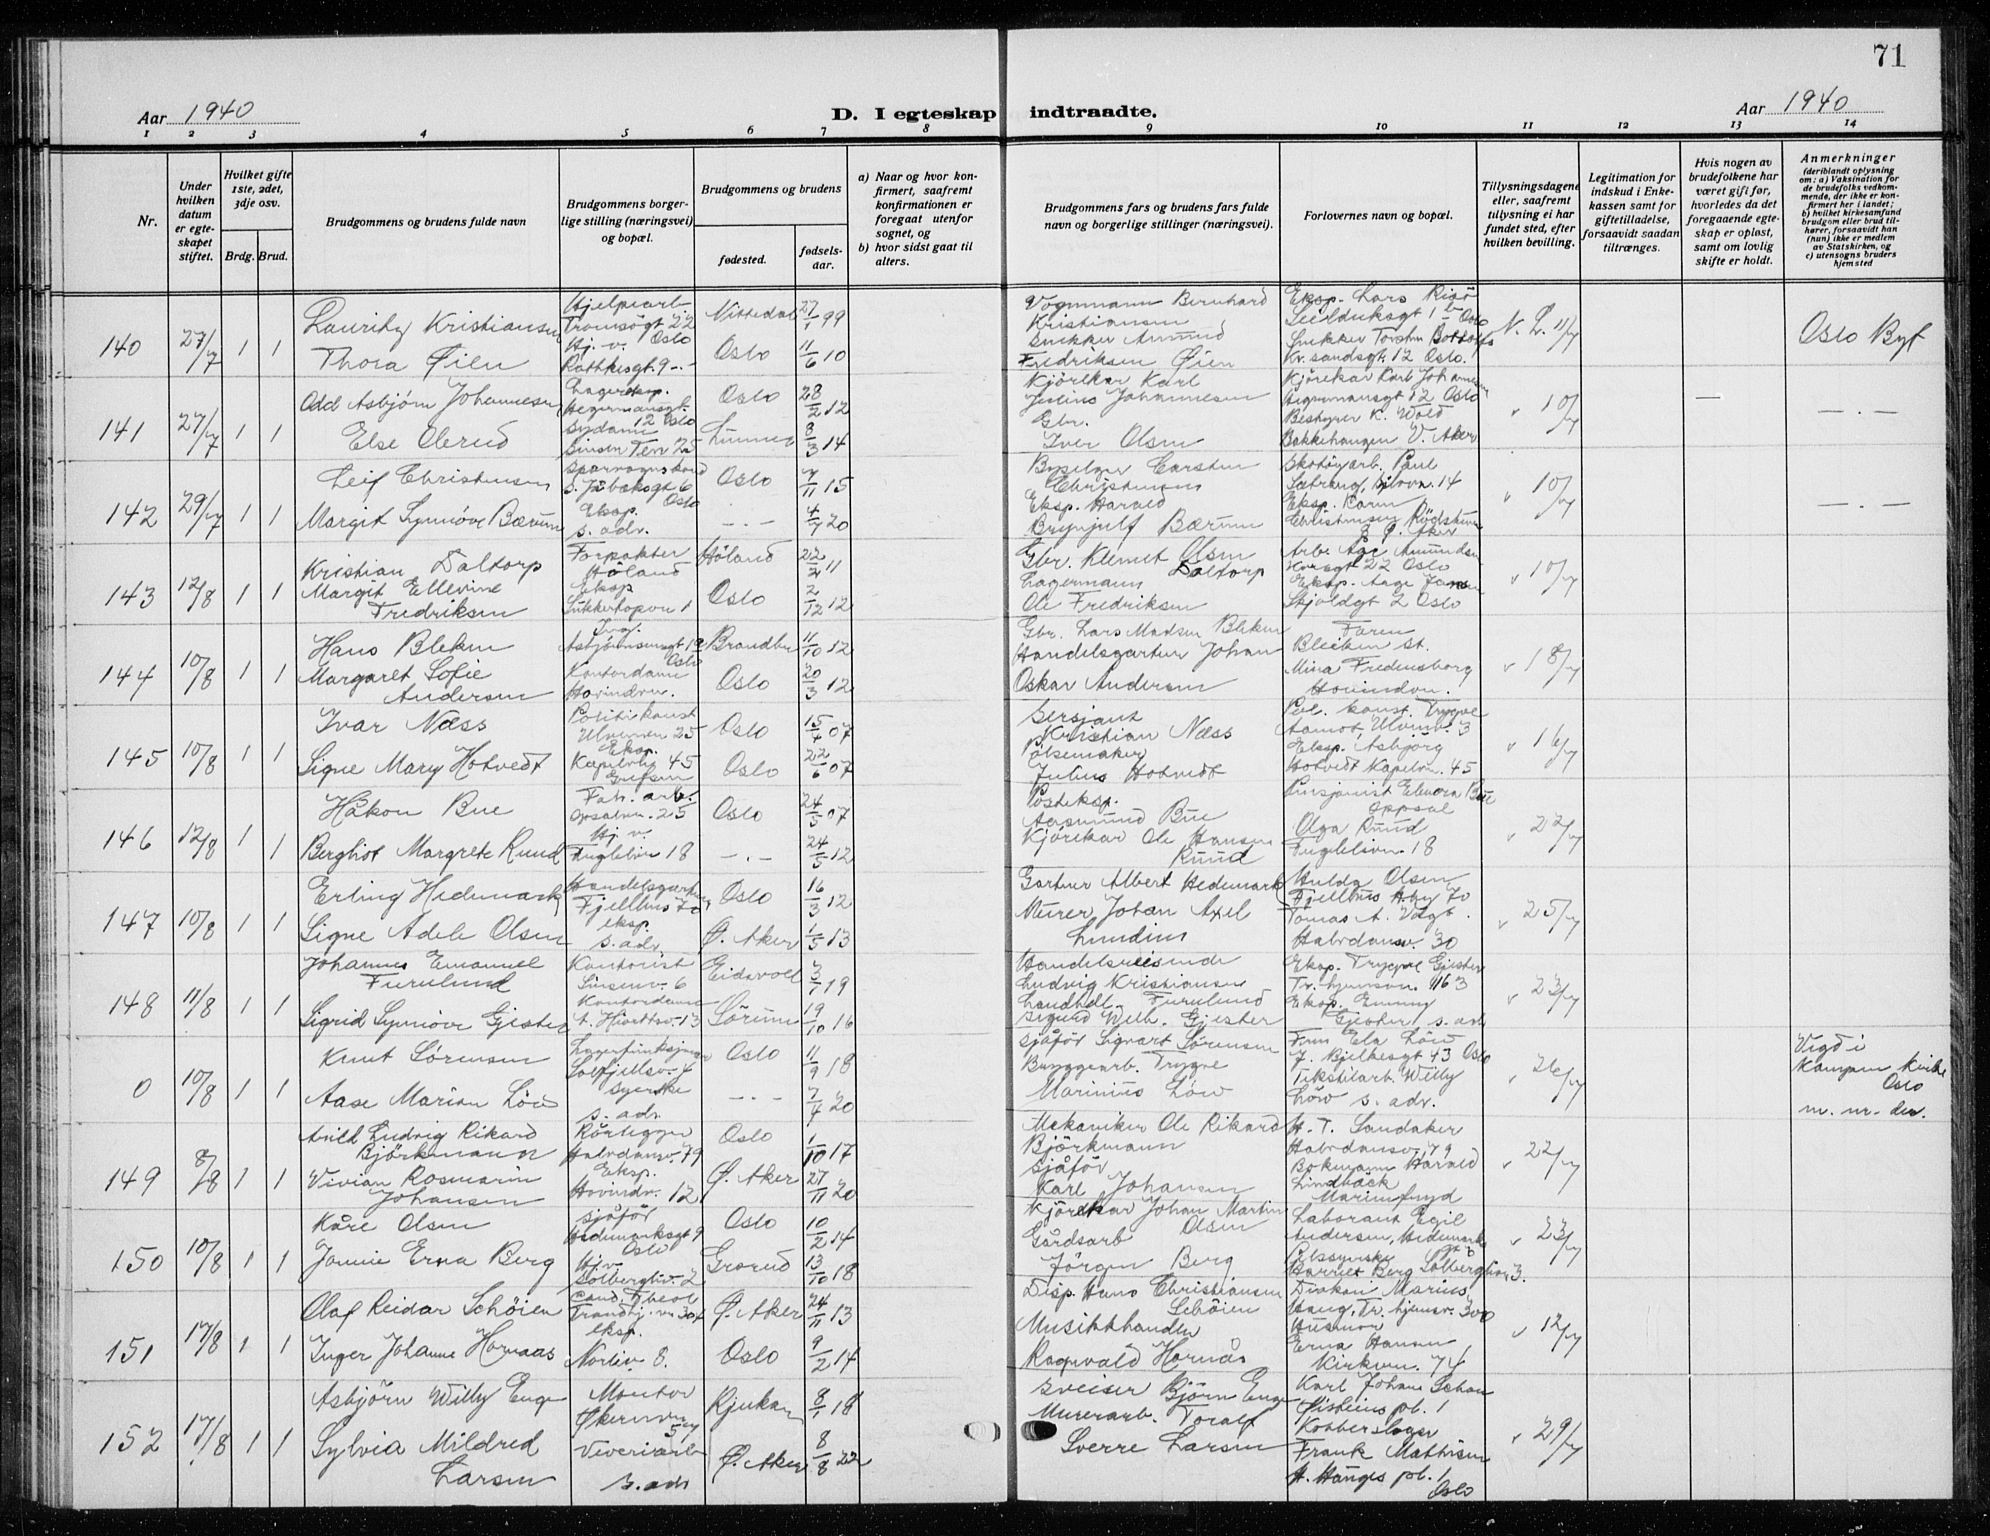 71
Aar 1940
D. I egteskap indtraadte.
Aar 1940
1 2 3 4 5 6 7 8 9 10 11 12 13 14
Nr.
Under hvilken datum er egteskapet stiftet.
Hvilket gifte 1ste, 2det, 3dje osv.
Brdg. Brud.
Brudgommens og brudens fulde navn
Brudgommens borgerlige stilling (næringsvei) og bopæl.
Brudgommens og brudens
fødested.
fødselsaar.
a) Naar og hvor konfirmert, saafremt konfirmationen er foregaat utenfor sognet, og
b) hvor sidst gaat til alters.
Brudgommens fars og brudens fars fulde navn og borgerlige stillinger (næringsvei).
Forlovernes navn og bopæl.
Tillysningsdagene eller, saafremt tillysning ei har fundet sted, efter hvilken bevilling.
Legitimation for indskud i Enkekassen samt for giftetilladelse, forsaavidt saadan tiltrænges.
Hvis nogen av brudefolkene har været gift før, hvorledes da det foregaaende egteskap er opløst, samt om lovlig skifte er holdt.
Anmerkninger
(deriblandt oplysning om: a) Vaksination for de brudefolks vedkommende, der ikke er konfirmert her i landet; b) hvilket kirkesamfund brudgom eller brud tilhører, forsaavidt han (hun) ikke er medlem av Statskirken, og c) utensogns bruders hjemsted
140 27/7 1 1
Kristiansen
Thora Øien
Hjelpearb
Tromsøgt 22
Hj. v. Oslo
Rathkesgt. 9
Nittedal 27/1 99
Oslo 11/6 10
Vognmann Bernhard
Kristiansen
Snikker Amund
Fredriksen Øien
Eksp. Lars Risø
Kr. sandsgt. 12 Oslo.
N. L. 11/7
Oslo Byf
141 27/7 1 1
Odd Asbjørn Johannesen
Else Olerud
Hegermannsgt.
12 Oslo
Sydame
Oslo 28/2 12
Lunner 8/3 14
Kjørekar Karl
Julius Johannesen
Gbr.
Iver Olsen
Kjørekar Karl Johannesen
Hegermannsgt 12 Oslo
Bestyrer K. Wold
Bakkehaugen V. Aker
" 10/7
— . —
142 29/7 1 1
Leif Christensen
Margit Synnøve Bærum
Oslo
Eksp.
s. adv.
Oslo 7/11 15
— . — 4/7 20
Carsten
Christensen
Eksp. Harald
Brynjulf Bærum
Skotøyarb. Paul
Eksp. Karin
Christensen
Ø. Aker
" 10/7
— . —
143 12/8 1 1
Kristian Daltorp
Margit Ellevine
Fredriksen
Forpakter
Høland
Eksp
Sukkertopvn 1
Høland 22/2 11
Oslo 2/12 12
Gbr. Klemet Olsen
Daltorp
Lagermann
Ole Fredriksen
Arb. Åge Amundsen
22 Oslo
Eksp. Aage
Skjoldgt 2 Oslo
" 10/7
144 10/8 1 1
Hans Bleken
Margaret Sofie
Andersen
Asbjørnsensgt 12
Oslo
Kontordame
Hovindvn.
Brandbu 11/10 12
Oslo 20/3 12
Gbr. Lars Madsen Bleken
Handelsgartner Johan
Oskar Andersen
Faren
Bleiken st.
Mina Fredensborg
Hovindvn.
" 18/7
145 10/8 1 1
Ivar Næss
Signe Mary Hotvedt
Politikonst
Ulvenvn 25
Eksp.
Kapelvn 45
Grefsen
Oslo 15/4 07
Oslo 22/6 07
Sersjant
Kristian Næss
Pølsemaker
Julius Hotvedt
Pol. konst. Trygve
Aamot, Ulvenv. 3
Eksp. Asbjørg
Hotvedt Kapelvn. 45
" 16/7
146 12/8 1 1
Håkon Bue
Bergliot Margrete Ruud
Fab. arb.
Opsalvn. 25
Hj v.
18
Oslo 24/5 07
— . — 24/5 12
Posteksp.
Aasmund Bue
Kjørekar Ole Hansen
Ruud
Pensjonist Elenora Bue
Oppsal
Olga Ruud
18
" 22/7
147 10/8 1 1
Erling Hedemark
Signe Adele Olsen
Handelsgartner
Fjellhus 70
eksp.
s. adv.
Oslo 16/3 12
Ø. Aker 1/5 13
Gartner Albert Hedemark
Murer Johan Axel
Lundin
Hulda Olsen
Fjellhus Hby 70
Tomas A. Vogt
Halvdansv. 30
" 25/7
148 11/8 1 1
Johannes Emanuel
Furulund
Sigrid Synnøve Gjester
Kontorist
Sinsenv. 6
Kontordame
13
Eidsvoll 3/7 19
Sørum 19/10 16
Handelsreisende
Ludvig Kristiansen
Furulund
Landhdl.
Sigurd Wilh. Gjester
Eksp. Trygve Gjester
Tr. hjemsvn. 116 3
Eksp. Emmy
Gjester s. adv
" 23/7
0 10/8 1 1
Knut Sørensen
Aase Marion Löw
Solfjellsv. 4
Syerske
s. adv.
Oslo 11/9 18
— . — 7/4 20
Sjåfør Sigvart Sørensen
Bryggearb. Trygve
Marinius Löw
Fru Ela Löw
J. Bjelkesgt 43 Oslo
Tekstilarb. Willy
Löw s. adv.
" 26/7
Vigd i
Kampen Kirke
Oslo
m. nr. der.
149 8/8 1 1
Arild Ludvig Rikard
Björkmann
Vivian Rosmarin
Johansen
Rørlegger
Halvdansv. 79
Eksp.
Hovindv. 12
Oslo 1/10 17
Ø. Aker 27/11 20
Mekaniker Ole Rikard
Björkmann
Sjåfør
Karl Johansen
H. T. Sandaker
Halvdansv 79
Harald
Lindbäck
" 22/7
150 10/8 1 1
Kåre Olsen
Jonnie Erna Berg
Sjåfør
Hedemarksgt 9
Oslo
Hj v
Solbergliv. 2
Oslo 10/2 14
Grorud 13/10 18
Kjørekar Johan Martin
Olsen
Gårdsarb
Jörgen Berg
Laborant Egil
Andersen, Hedemarksgt
Pelssyerske
Harriet Berg Solbergliv 3.
" 23/7
151 17/8 1 1
Olaf Reidar Schøien
Inger Johanne Hornaas
Cand. Theol
Trondhj. vn 304
eksp.
Norliv 8.
Ø. Aker 24/11 13
Oslo 9/2 14
Disp. Hans Christiansen
Schøien
Musikkhandler
Ragnvald Hornås
Diakon Marius
Haug, Tr. hjemsv. 300
Husmor
Erna Hansen
Kirkevn. 74
" 12/7
152 17/8 1 1
Asbjörn Willy Enge
Sylvia Mildred
Larsen
Montør
Økernvn
Veveriarb
s. adv
Rjukan 8/1 18
Ø. Aker 8/8 22
Sveiser Björn Enge
Murerarb. Toralf
Sverre Larsen
Karl Johan
pl. 1
Kobberslager
Frank Mathisen
H. Hauges pl. 1
Oslo
" 29/7